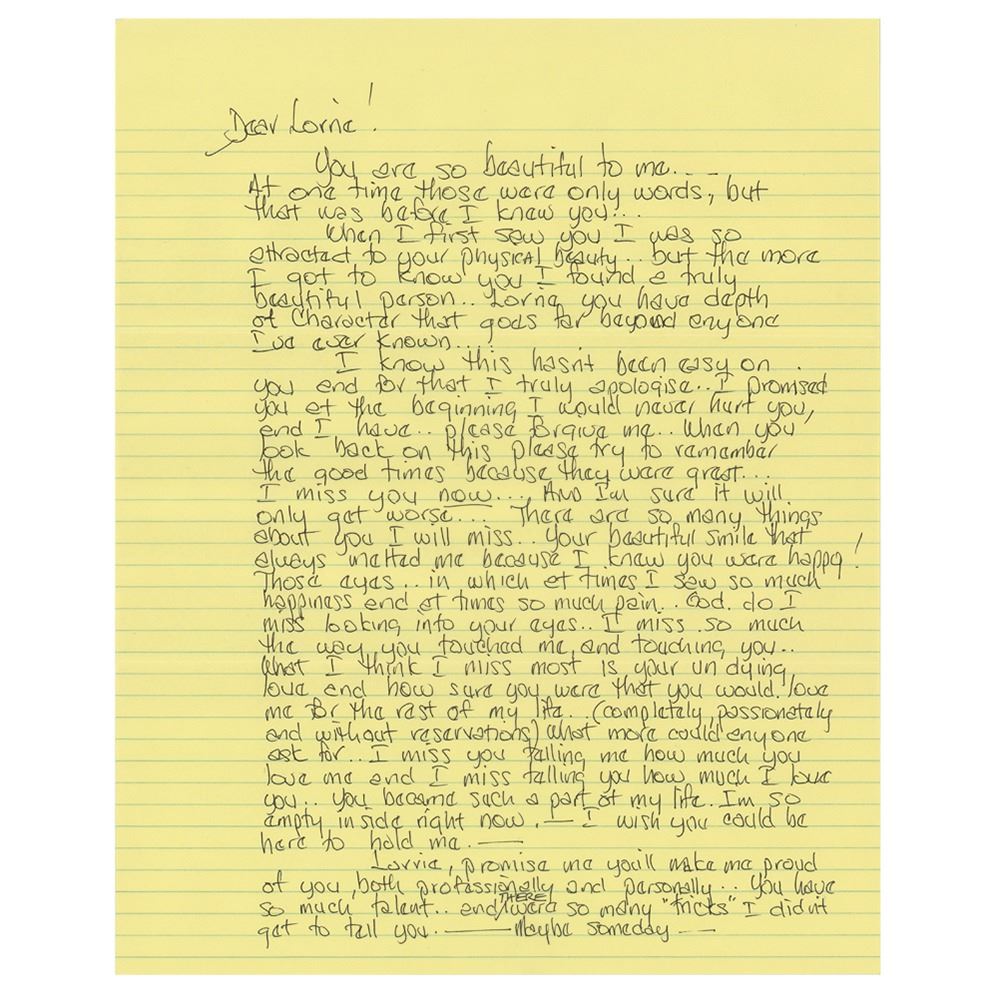 Dear Lorrie!
You are so beautiful to me....
At one time those were only words, but
that was before I knew you...
When I first saw you I was so
attracted to your physical beauty.. but the more
I got to know you I found a truly
beautiful person.. Lorrie, you have depth
of Character that goes far beyond anyone
I've ever known....
I know this hasn't been easy on
you and for that I truly apologise.. I promised
you at the beginning I would never hurt you,
and I have.. please forgive me.. When you
look back on this please try to remember
the good times because they were great...
I miss you now..., And I'm sure it will
only get worse... There are so many things
about you I will miss.. Your beautiful smile that
always melted me because I knew you were happy!
Those eyes.. in which at times I saw so much
happiness and at times so much pain.. God. do I
miss looking into your eyes.. I miss so much
the way you touched me, and touching you..
What I think I miss most is your un dying
love and how sure you were that you would love
me for the rest of my life.. (completely, passionately
and without reservations) what more could anyone
ask for.. I miss you telling me how much you
love me and I miss telling you how much I love
you.. You became such a part of my life. I'm so
empty inside right now. — I wish you could be
here to hold me. —
Lorrie, promise me you'll make me proud
of you, both professionally and personally.. You have
so much talent.. and THERE were so many "tricks" I didn't
get to tell you. — Maybe someday --